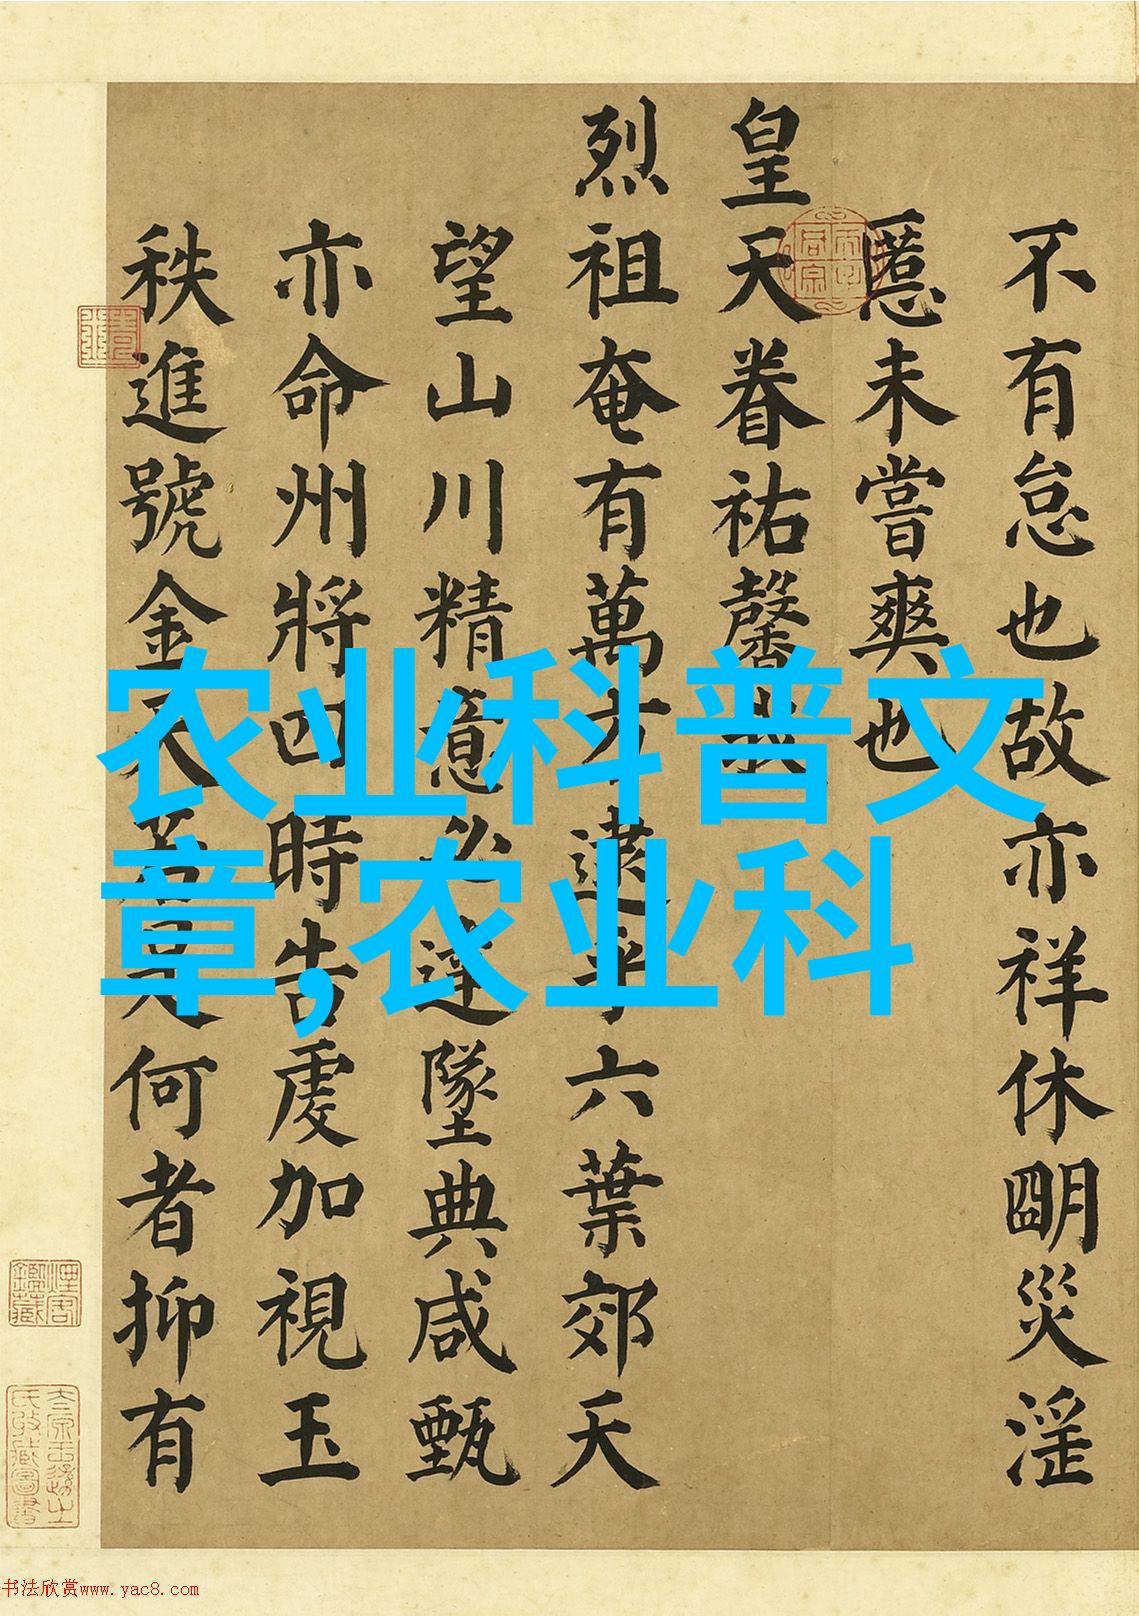 不有怠也故亦祥休朙災淫
慝未嘗爽也
皇天眷祐馨我
烈祖奄有萬方逮乎六葉郊天
望山川精意必達墜典咸甄
亦命州將四時告虔加視玉
秩進號金天若是何者抑有
农业科普文
章,农业科
书法欣赏www.yac8.com